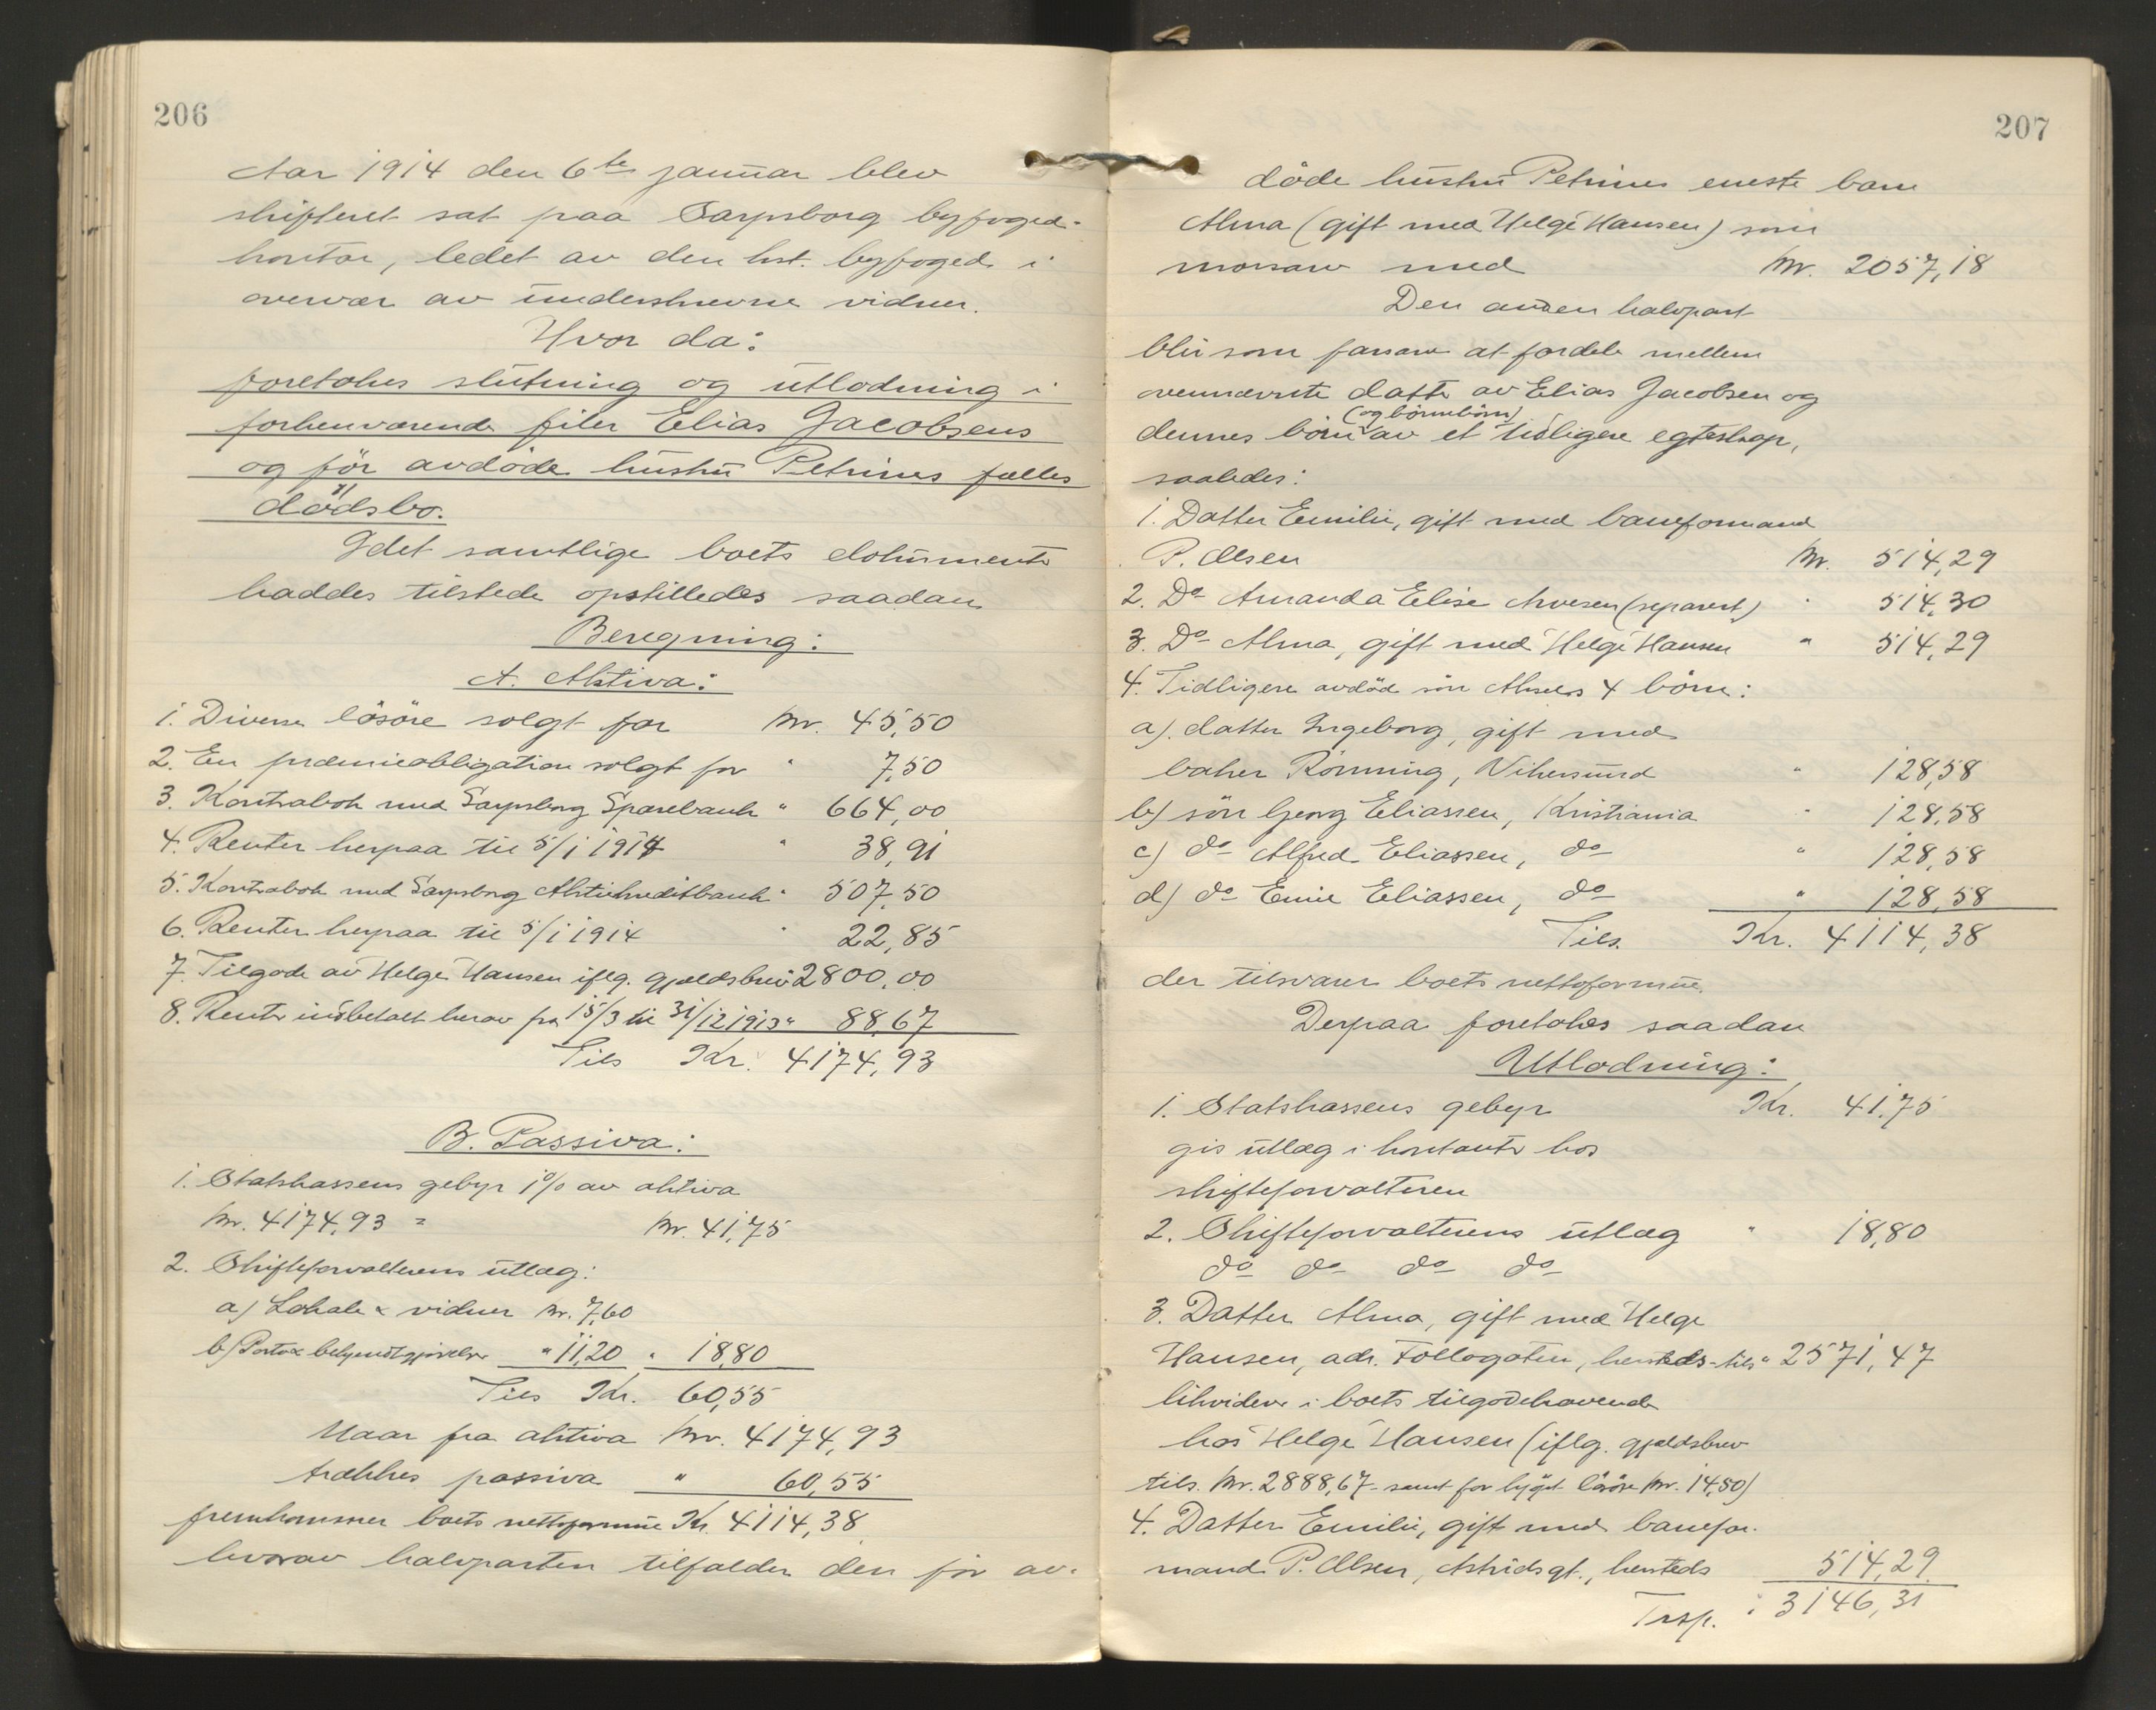 206
Aar 1914 den 6te januar blev
skifteret sat paa Sarpsborg byfoged-
kontor, ledet av den kst. byfoged i
overvær av underskrevne vidner.
Hvor da:
foretokes slutning og utlodning i
forhenværende filer Elias Jacobsens
og før avdøde hustru Petrines fælles
dødsbo.
Idet samtlige boets dokumenter
haddes tilstede opstilledes saadan
Beregning:
A. Aktiva:
1. Diverse løsøre solgt for kr. 45,50
2. En præmieobligation solgt for " 7,50
3. Kontrabok med Sarpsborg Sparebank " 664,00
4. Renter herpaa til 5/1 1914 " 38,91
5. Kontrabok med Sarpsborg Aktiekreditbank " 507,50
6. Renter herpaa til 5/1 1914 " 22,85
7. Tilgode av Helge Hansen iflg. gjældsbrev 2800,00
8. Renter indbetalt herav fra 15/3 til 31/12 1913 " 88,67
Tils Kr. 4174,93
B. Passiva:
1. Statskassens gebyr 1% av aktiva
kr. 4174,93 = kr. 41,75
2. Skifteforvalterens utlæg:
a) Lokale & vidner kr. 7,60
b) Porto & bekjendtgjørelser " 11,20 " 18,80
Tils Kr. 60,55
Naar fra aktiva kr. 4174,93
trækkes passiva " 60,55
fremkommer boets nettoformue Kr. 4114,38
hvorav halvparten tilfalder den før av-
207
døde hustru Petrines eneste barn
Alma (gift med Helge Hansen) som
morsarv med kr. 2057,18
Den anden halvpart
blir som farsarv at fordele mellem
ovennævnte datter av Elias Jacobsen og
(og børnebørn)
dennes børn av et tidligere egteskap,
saaledes:
1. Datter Emilie, gift med baneformand
P. Olsen kr. 514,29
2. Do Amanda Elise Arvesen (separert) " 514,30
3. Do Alma, gift med Helge Hansen " 514,29
4. Tidligere avdød søn 4 børn:
a). datter Ingeborg, gift med
baker Rønning, Vikersund " 128,58
b) søn Georg Eliassen, Kristiania " 128,58
c) do Alfred Eliassen, do " 128,58
d) do Emil Eliassen, do " 128,58
Tils. Kr. 4114,38
der tilsvarer boets nettoformue.
Derpaa foretokes saadan
Utlodning:
1. Statskassens gebyr Kr. 41,75
gis utlæg i kontanter hos
skifteforvalteren
2. Skifteforvalterens utlæg " 18,80
do do do do
3. Datter Alma, gift med Helge
Hansen, adr. Follogaten, hersteds-tils " 2571,47
likvideres i boets tilgodehavende
hos Helge Hansen (iflg. gjældsbrev
tils. kr. 2888,67 - samt for kjøpt løsøre kr. 14,80)
4. Datter Emilie, gift med banefor-
mand P. Olsen, Astridsgt., hersteds 514,29
Trsp. : 3146,31